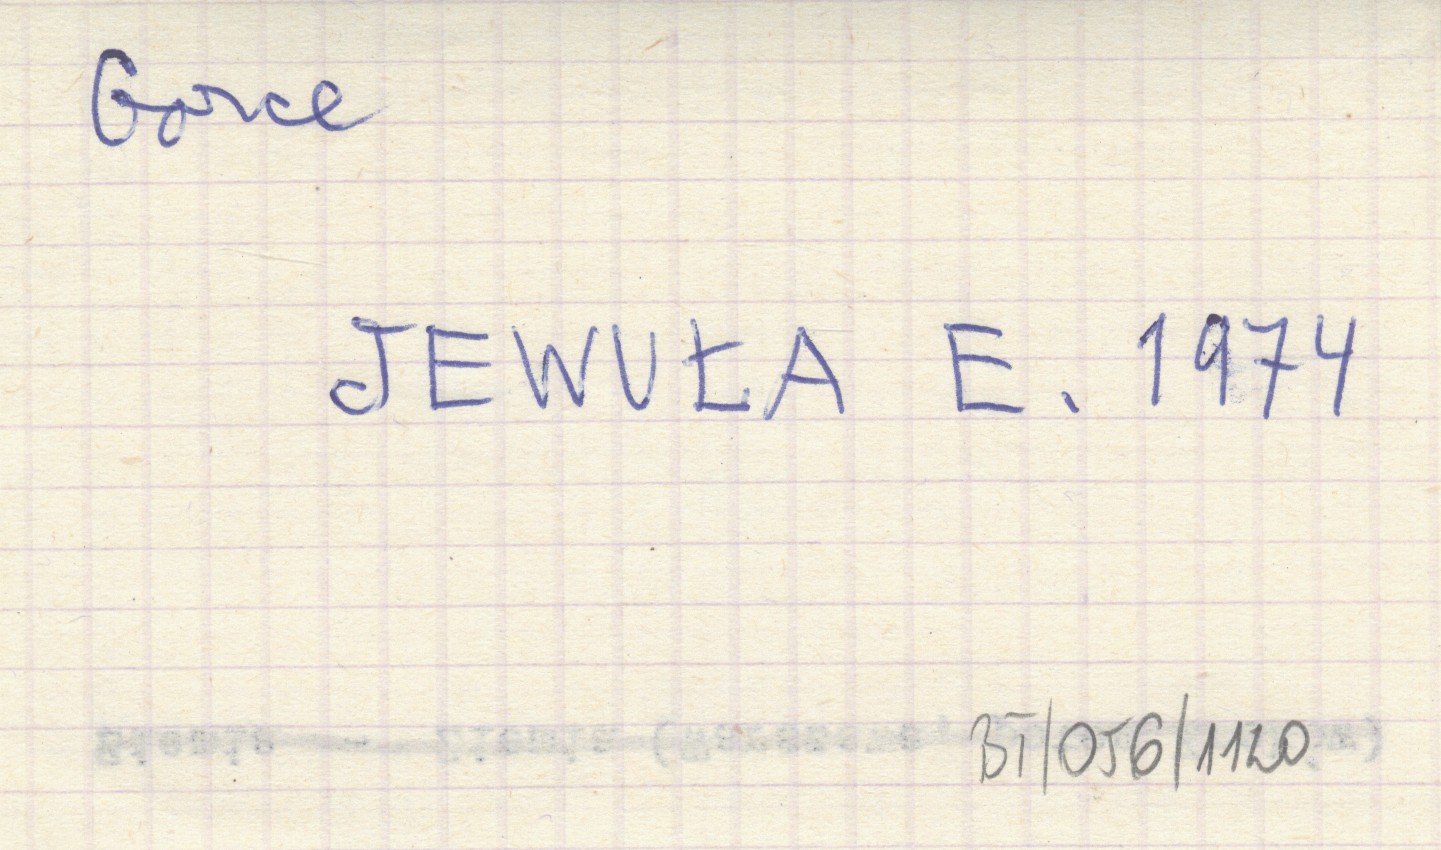 Gorce
JEWUŁA E. 1974
BT/056/1120